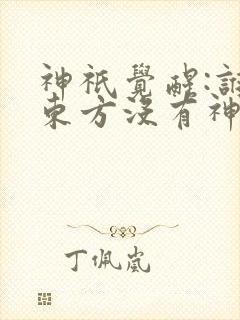 神祇覺醒:誰
東方沒有神
丁佩嵐